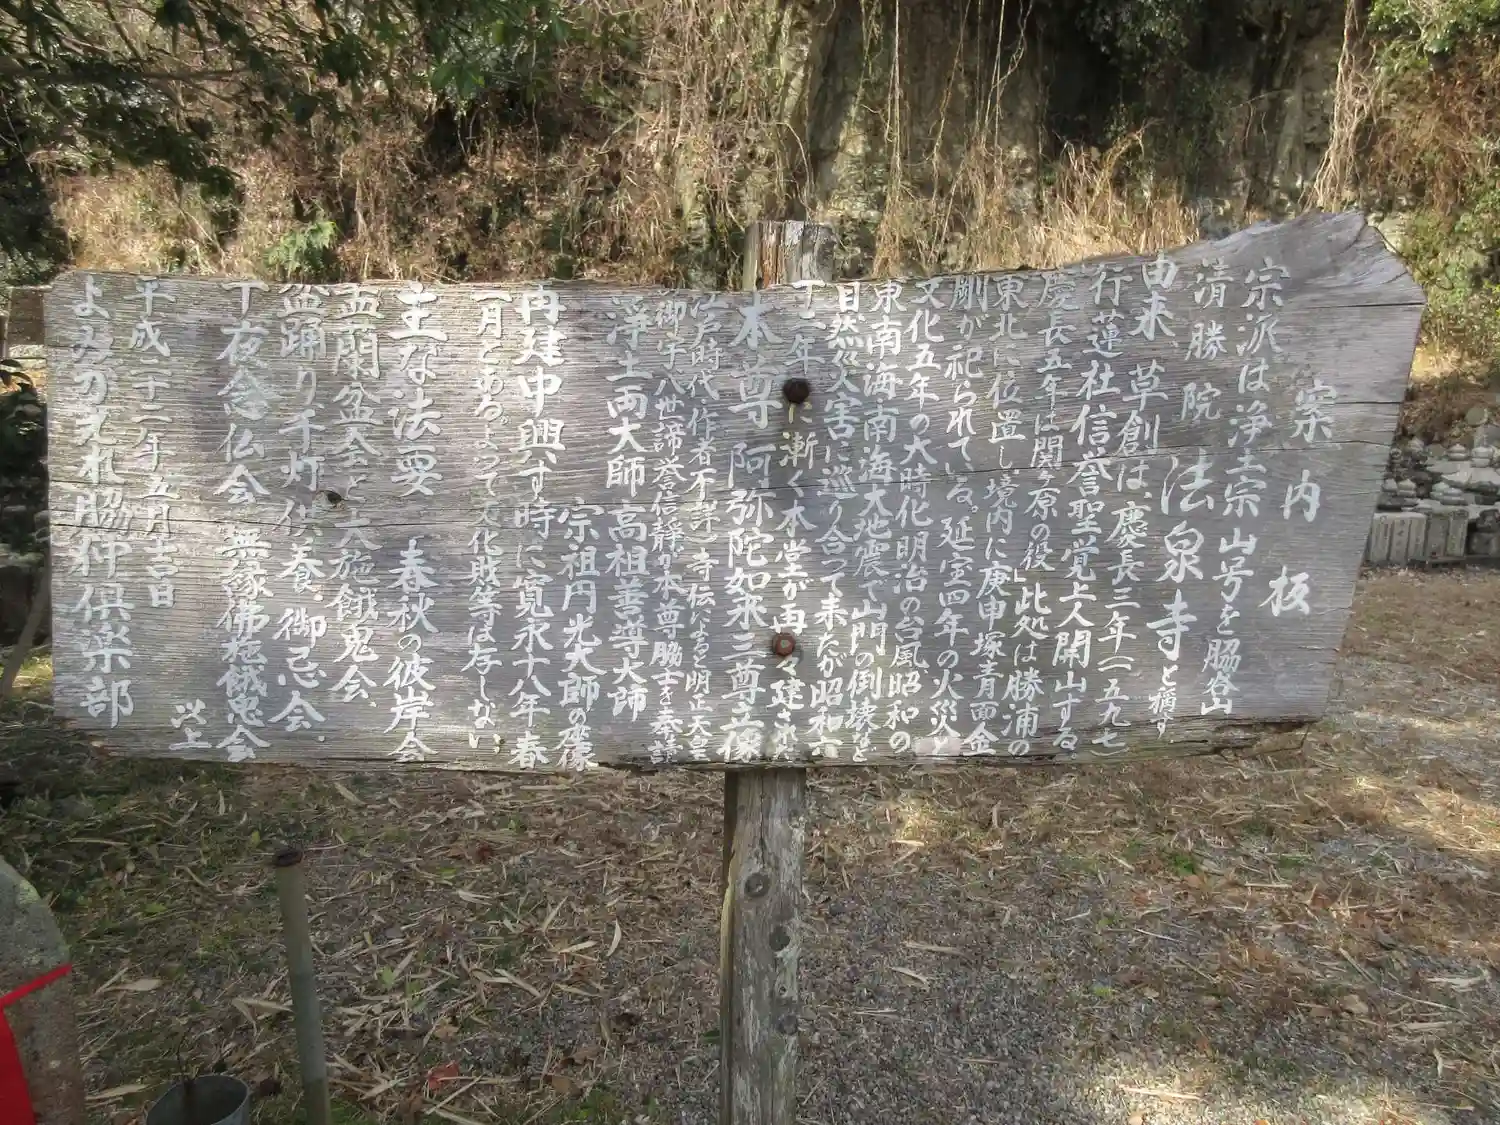 案内板
宗派は浄土宗山号を脇谷山
清勝院 法泉寺と稱す
由来、草創は、慶長三年(一五九七
行蓮社信誉聖覚上人開山する
慶長五年は関ヶ原の役」此処は勝浦の
東北に位置し境内に庚申塚青面金
剛が祀られている。延宝四年の火災と
文化五年の大時化明治の台風昭和の
東南海南海大地震で山門の倒壊など
自然災害に巡り合って来たが昭和六
十二年に漸く本堂が再々建された
本尊 阿弥陀如来三尊立像
江戸時代(作者不詳)寺伝によると明正天皇
御宇八世諦誉信静が本尊脇士を奉請
浄土両大師高祖善導大師
宗祖円光大師の座像
再建中興す時に寛永十八年春
一月とある。よって文化財等は存しない
主な法要 春秋の彼岸会
盂蘭盆会と大施餓鬼会、
盆踊り千灯供養、御忌会、
十夜念仏会 無縁佛施餓鬼会
以上
平成二十二年五月吉日
よみがえれ脇狎倶楽部